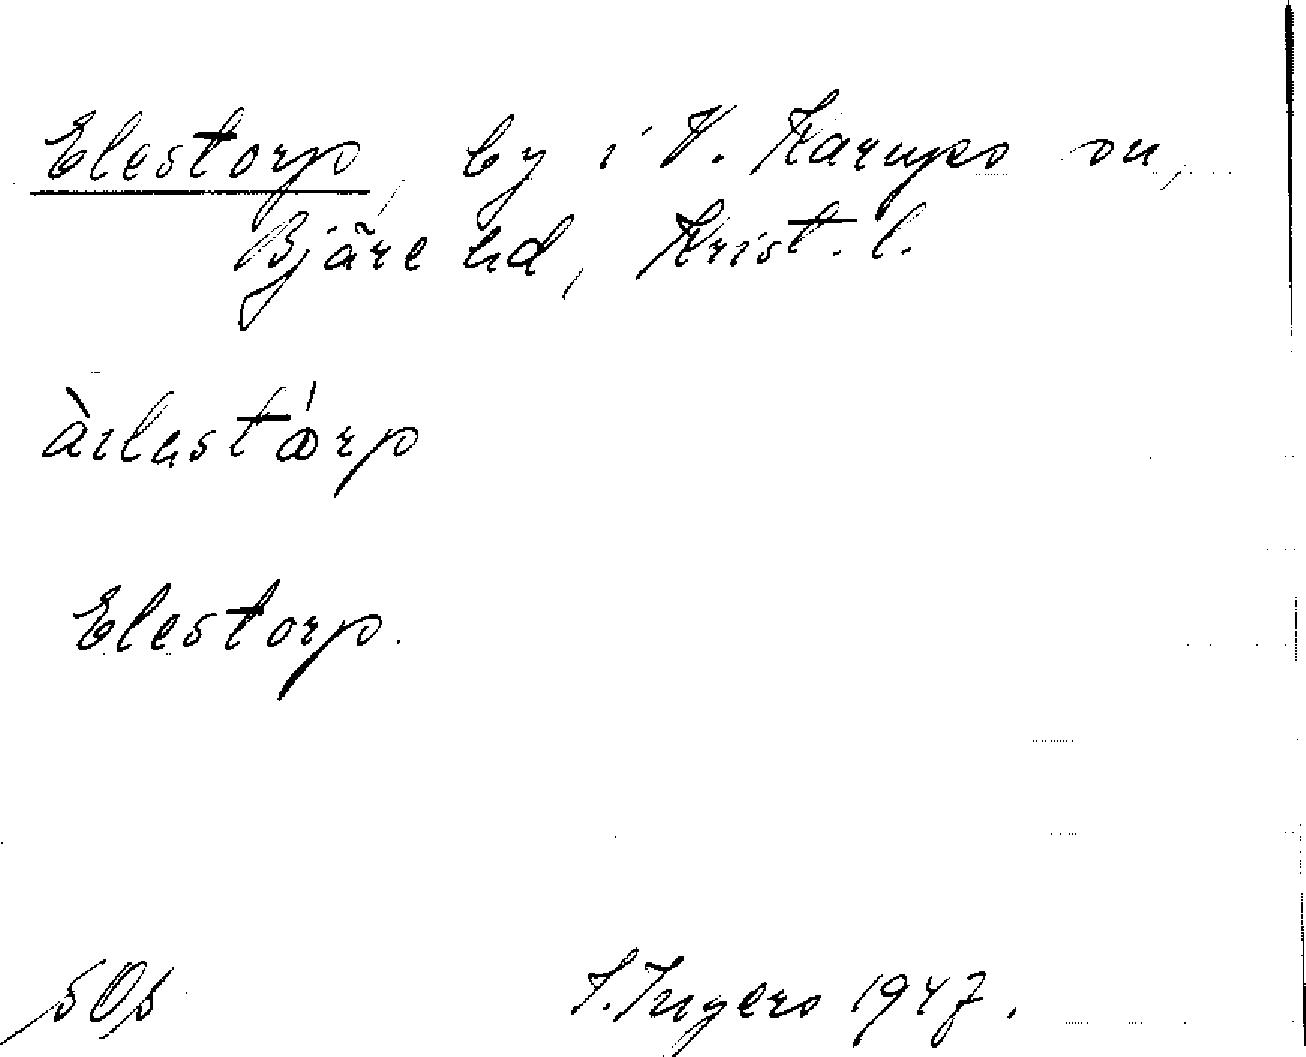 Elestorp, by i V. Karups sn,
Bjäre hd, Krist. l.
àilastårp
Elestorp.
SOs
I. Ingers 1947.